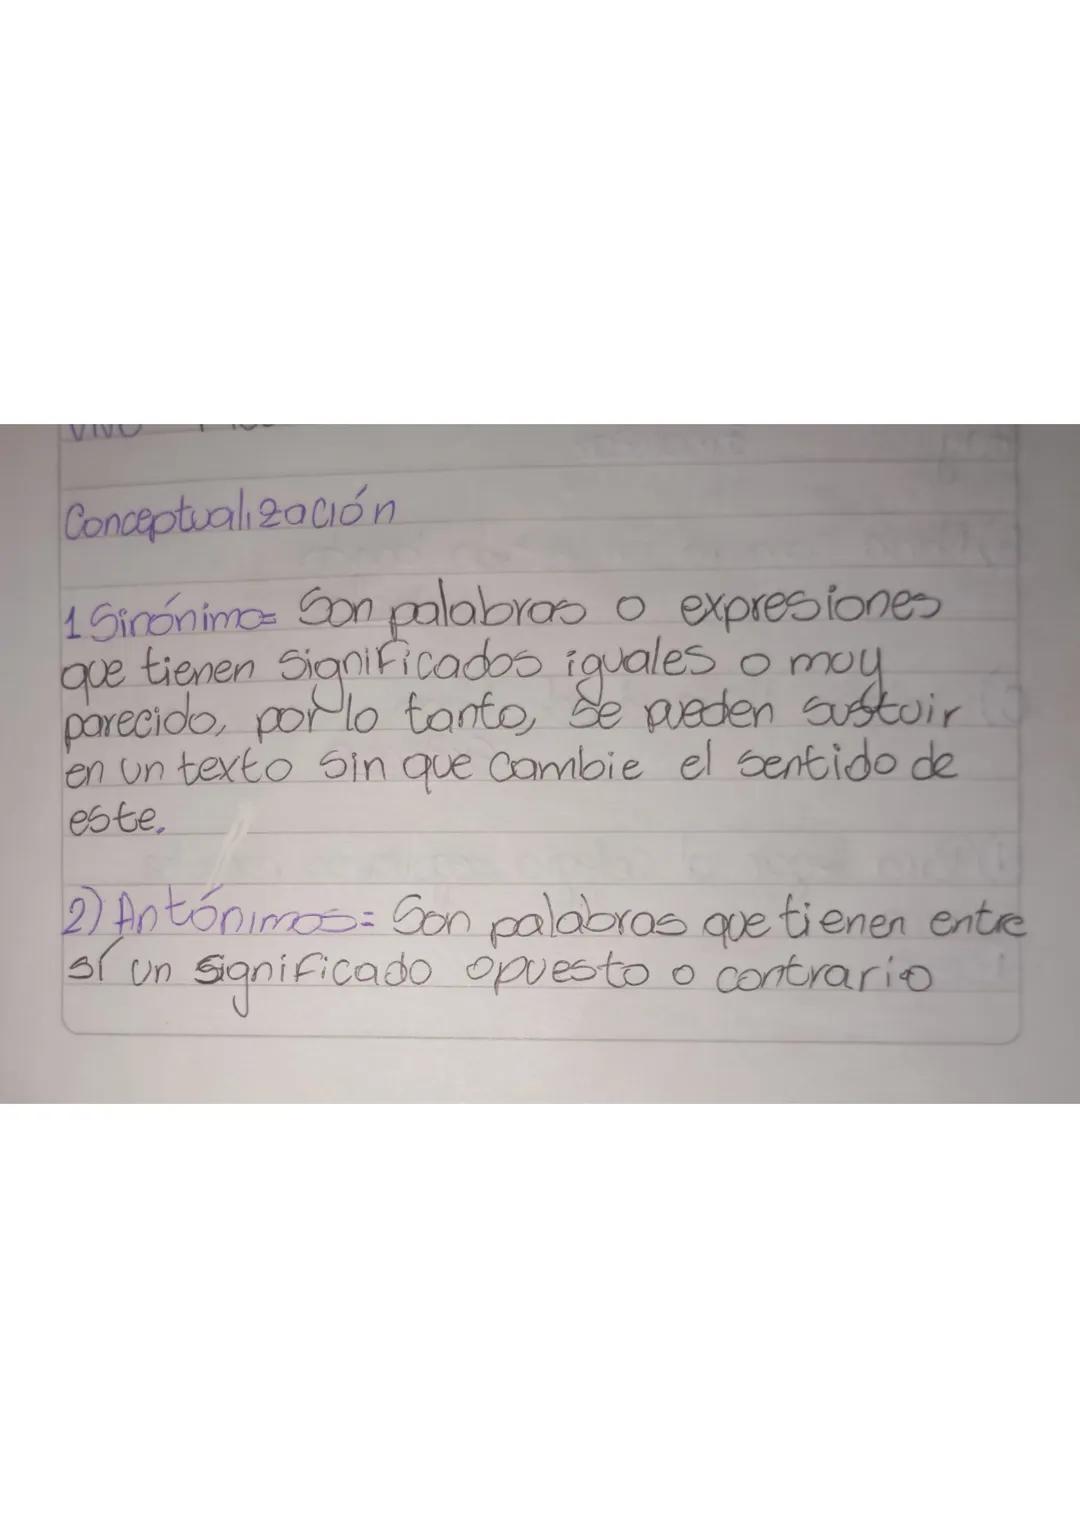 Conceptualización
1 Sinónimo= Son palabras o expresiones
que tienen significados iguales o muy
parecido, por lo tanto, se pueden sustuir
en un texto sin que cambie el sentido de
este.
2) Antónimos= Son palabras que tienen entre
sí un significado opuesto o contrario